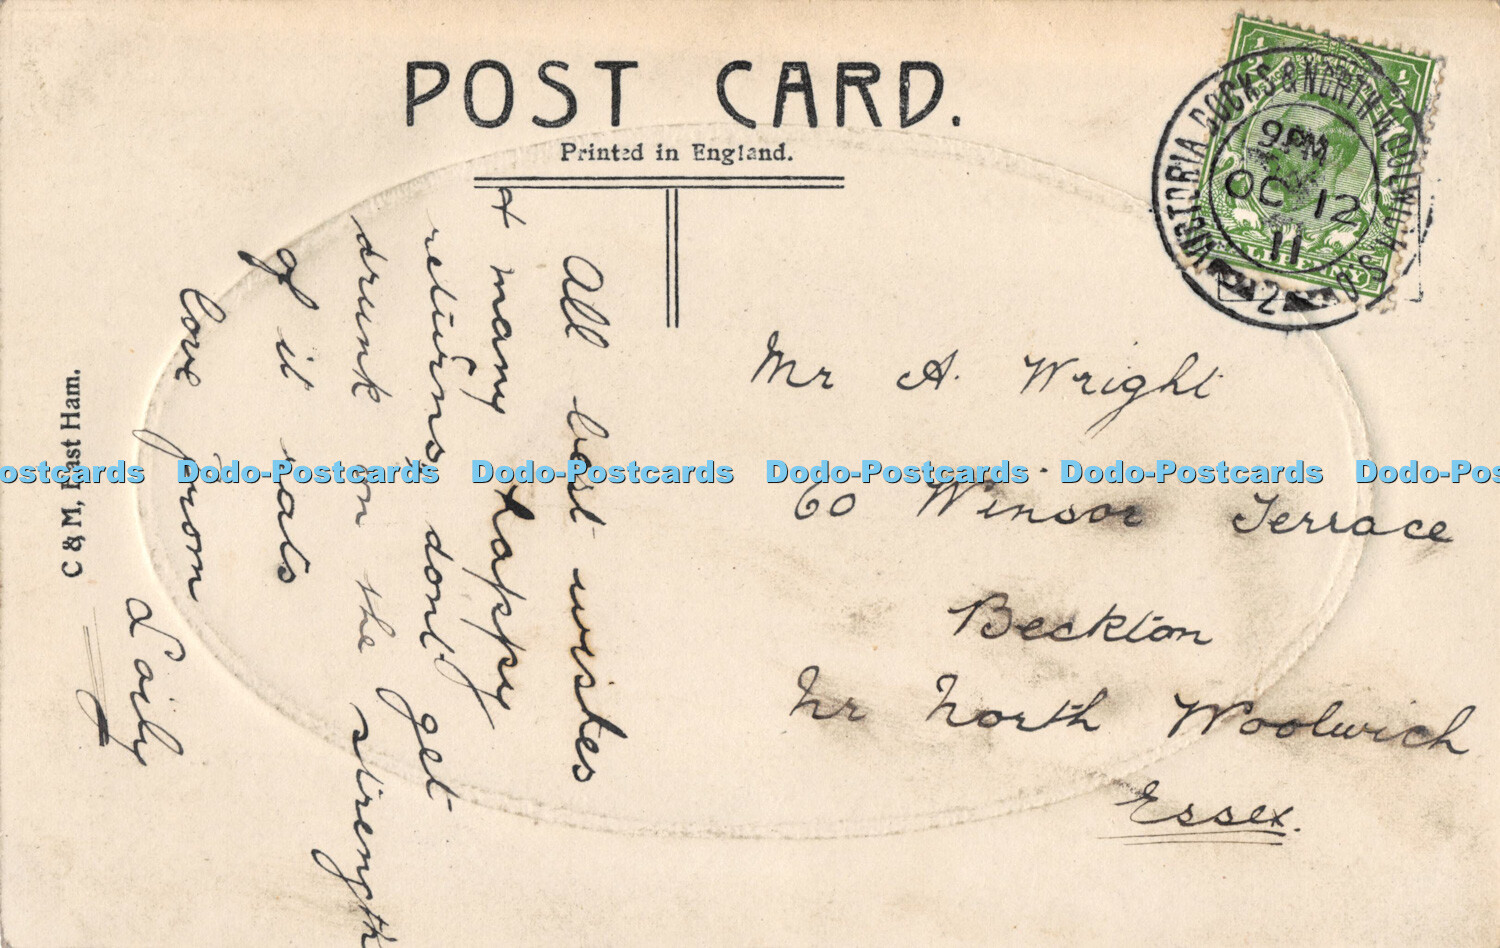 POST CARD.
Printed in England.
All best wishes
& many happy
returns don't get
drunk on the strength
of it
love from
C & M, East Ham.
Mr A. Wright
60 Winsor Terrace
Beckton
Nr North Woolwich
Essex.
VICTORIA DOCKS & NORTH WOOLWICH S.O.
9 PM
OC 12
11
2
HALFPENNY
Dodo-Postcards Dodo-Postcards Dodo-Postcards Dodo-Postcards Dodo-Postcards